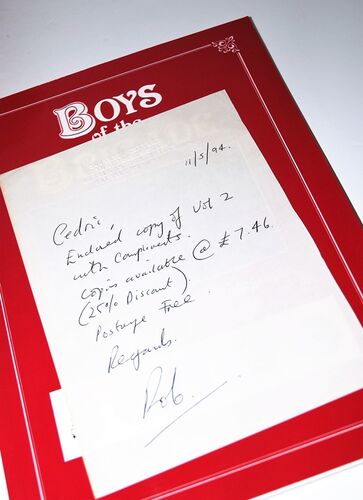 BOYS
of the
11/5/94.
Cedric,
Enclosed copy of Vol 2
with Compliments.
Copies available @ £7.46.
(25% Discount)
Postage Free.
Regards.
Rob.